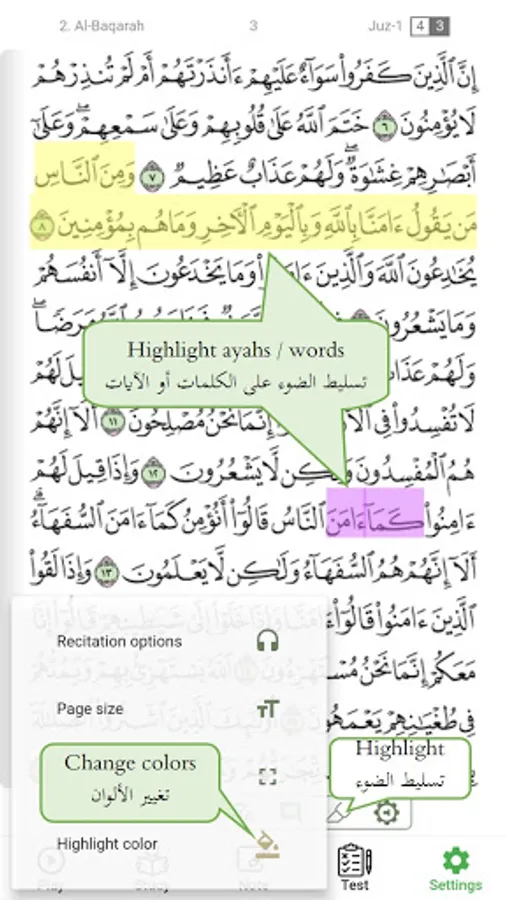 2. Al-Baqarah 3 Juz-1 4 3
إِنَّ ٱلَّذِينَ كَفَرُوا۟ سَوَآءٌ عَلَيْهِمْ ءَأَنذَرْتَهُمْ أَمْ لَمْ تُنذِرْهُمْ
لَا يُؤْمِنُونَ ٦ خَتَمَ ٱللَّهُ عَلَىٰ قُلُوبِهِمْ وَعَلَىٰ سَمْعِهِمْ ۖ وَعَلَىٰٓ
أَبْصَـٰرِهِمْ غِشَـٰوَةٌ ۖ وَلَهُمْ عَذَابٌ عَظِيمٌ ٧ وَمِنَ ٱلنَّاسِ
مَن يَقُولُ ءَامَنَّا بِٱللَّهِ وَبِٱلْيَوْمِ ٱلْـَٔاخِرِ وَمَا هُم بِمُؤْمِنِينَ ٨
يُخَـٰدِعُونَ ٱللَّهَ وَٱلَّذِينَ وَمَا يَخْدَعُونَ إِلَّآ أَنفُسَهُمْ
وَمَا يَشْعُرُونَ مَرَضًا ۖ
Highlight ayahs / words
تسليط الضوء على الكلمات أو الآيات
وَلَهُمْ لَهُمْ
لَا تُفْسِدُوا۟ فِى إِنَّمَا نَحْنُ مُصْلِحُونَ ١١ أَلَآ إِنَّهُمْ
هُمُ ٱلْمُفْسِدُونَ وَلَـٰكِن لَّا يَشْعُرُونَ ١٢ وَإِذَا قِيلَ لَهُمْ
ءَامِنُوا۟ كَمَآ ءَامَنَ ٱلنَّاسُ قَالُوٓا۟ أَنُؤْمِنُ كَمَآ ءَامَنَ ٱلسُّفَهَآءُ ۗ
أَلَآ إِنَّهُمْ هُمُ ٱلسُّفَهَآءُ وَلَـٰكِن لَّا يَعْلَمُونَ ١٣ وَإِذَا لَقُوا۟
ٱلَّذِينَ ءَامَنُوا۟ قَالُوٓا۟
مَعَكُمْ إِنَّمَا نَحْنُ
فِى طُغْيَـٰنِهِمْ يَعْمَهُونَ
Recitation options
Page size
Change colors
تغيير الألوان
Highlight
تسليط الضوء
Highlight color
Test
Settings